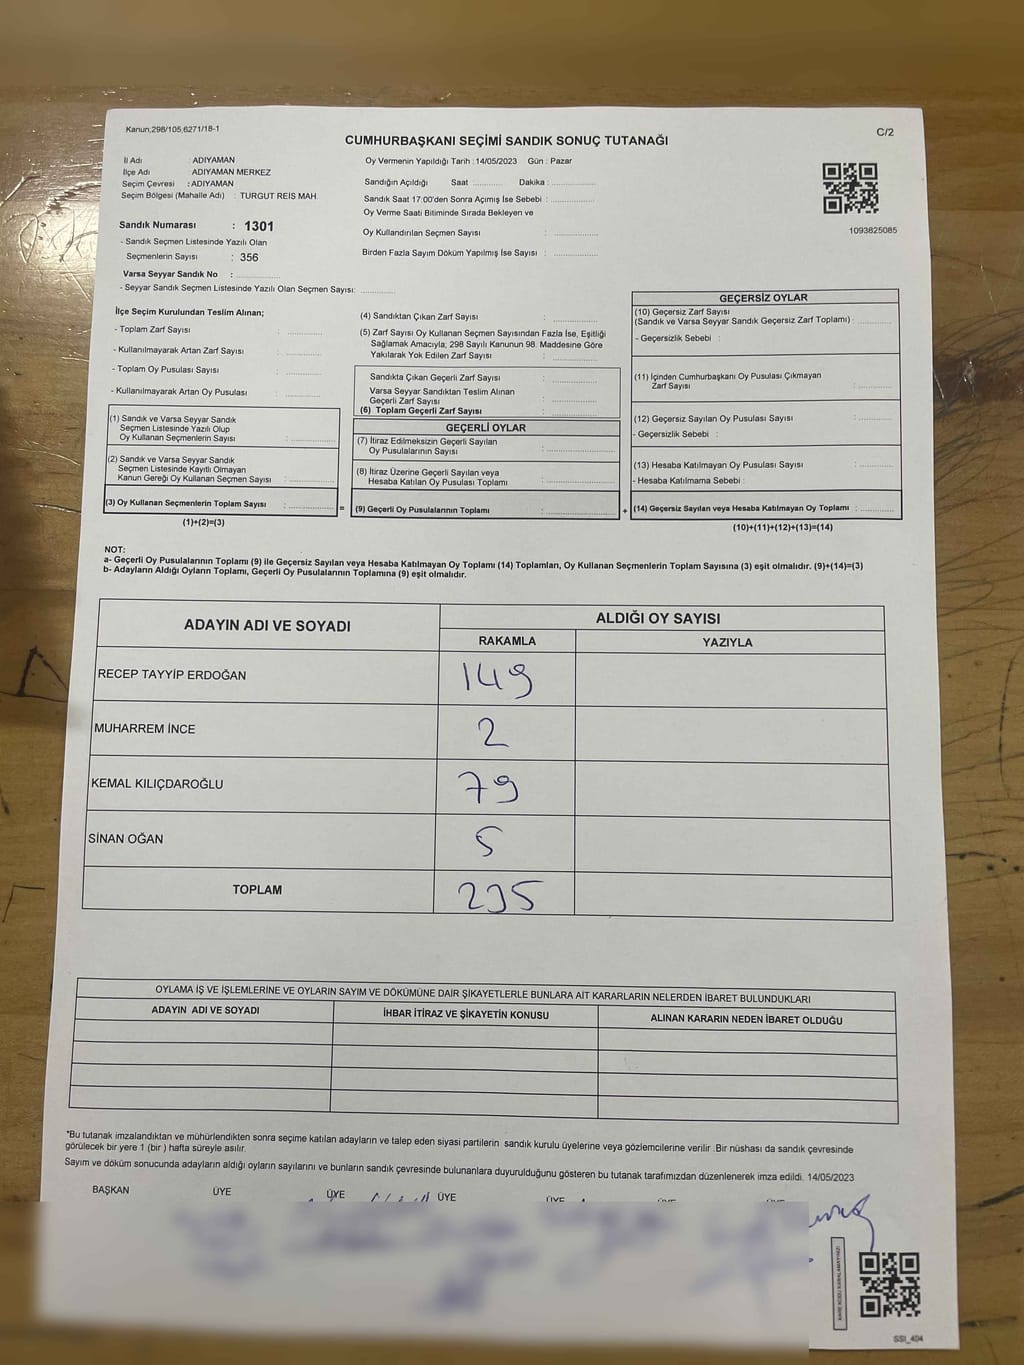 Kanun;298/105,6271/18-1
C/2
CUMHURBAŞKANI SEÇİMİ SANDIK SONUÇ TUTANAĞI
İl Adı : ADIYAMAN
İlçe Adı : ADIYAMAN MERKEZ
Seçim Çevresi : ADIYAMAN
Seçim Bölgesi (Mahalle Adı) : TURGUT REİS MAH.
Sandık Numarası : 1301
- Sandık Seçmen Listesinde Yazılı Olan
Seçmenlerin Sayısı : 356
Varsa Seyyar Sandık No : ............
- Seyyar Sandık Seçmen Listesinde Yazılı Olan Seçmen Sayısı: ............
Oy Vermenin Yapıldığı Tarih : 14/05/2023 Gün : Pazar
Sandığın Açıldığı Saat ............ Dakika : ............
Sandık Saat 17:00'den Sonra Açımış İse Sebebi : ............
Oy Verme Saati Bitiminde Sırada Bekleyen ve
Oy Kullandırılan Seçmen Sayısı : ............
Birden Fazla Sayım Döküm Yapılmış İse Sayısı : ............
1093825085
İlçe Seçim Kurulundan Teslim Alınan;
- Toplam Zarf Sayısı : ............
- Kullanılmayarak Artan Zarf Sayısı : ............
- Toplam Oy Pusulası Sayısı : ............
- Kullanılmayarak Artan Oy Pusulası : ............
(1) Sandık ve Varsa Seyyar Sandık
Seçmen Listesinde Yazılı Olup
Oy Kullanan Seçmenlerin Sayısı : ............
(2) Sandık ve Varsa Seyyar Sandık
Seçmen Listesinde Kayıtlı Olmayan
Kanun Gereği Oy Kullanan Seçmen Sayısı : ............
(3) Oy Kullanan Seçmenlerin Toplam Sayısı : ............
(1)+(2)=(3)
=
(4) Sandıktan Çıkan Zarf Sayısı : ............
(5) Zarf Sayısı Oy Kullanan Seçmen Sayısından Fazla İse, Eşitliği
Sağlamak Amacıyla; 298 Sayılı Kanunun 98. Maddesine Göre
Yakılarak Yok Edilen Zarf Sayısı : ............
Sandıkta Çıkan Geçerli Zarf Sayısı : ............
Varsa Seyyar Sandıktan Teslim Alınan
Geçerli Zarf Sayısı : ............
(6) Toplam Geçerli Zarf Sayısı : ............
GEÇERLİ OYLAR
(7) İtiraz Edilmeksizin Geçerli Sayılan
Oy Pusulalarının Sayısı : ............
(8) İtiraz Üzerine Geçerli Sayılan veya
Hesaba Katılan Oy Pusulası Toplamı : ............
(9) Geçerli Oy Pusulalarının Toplamı : ............
+
GEÇERSİZ OYLAR
(10) Geçersiz Zarf Sayısı
(Sandık ve Varsa Seyyar Sandık Geçersiz Zarf Toplamı) : ............
- Geçersizlik Sebebi :
(11) İçinden Cumhurbaşkanı Oy Pusulası Çıkmayan
Zarf Sayısı : ............
(12) Geçersiz Sayılan Oy Pusulası Sayısı : ............
- Geçersizlik Sebebi :
(13) Hesaba Katılmayan Oy Pusulası Sayısı : ............
- Hesaba Katılmama Sebebi :
(14) Geçersiz Sayılan veya Hesaba Katılmayan Oy Toplamı : ............
(10)+(11)+(12)+(13)=(14)
NOT:
a- Geçerli Oy Pusulalarının Toplamı (9) ile Geçersiz Sayılan veya Hesaba Katılmayan Oy Toplamı (14) Toplamları, Oy Kullanan Seçmenlerin Toplam Sayısına (3) eşit olmalıdır. (9)+(14)=(3)
b- Adayların Aldığı Oyların Toplamı, Geçerli Oy Pusulalarının Toplamına (9) eşit olmalıdır.
ADAYIN ADI VE SOYADI ALDIĞI OY SAYISI
RAKAMLA YAZIYLA
RECEP TAYYİP ERDOĞAN 149
MUHARREM İNCE 2
KEMAL KILIÇDAROĞLU 79
SİNAN OĞAN 5
TOPLAM 235
OYLAMA İŞ VE İŞLEMLERİNE VE OYLARIN SAYIM VE DÖKÜMÜNE DAİR ŞİKAYETLERLE BUNLARA AİT KARARLARIN NELERDEN İBARET BULUNDUKLARI
ADAYIN ADI VE SOYADI İHBAR İTİRAZ VE ŞİKAYETİN KONUSU ALINAN KARARIN NEDEN İBARET OLDUĞU
*Bu tutanak imzalandıktan ve mühürlendikten sonra seçime katılan adayların ve talep eden siyasi partilerin sandık kurulu üyelerine veya gözlemcilerine verilir .Bir nüshası da sandık çevresinde
görülecek bir yere 1 (bir ) hafta süreyle asılır.
Sayım ve döküm sonucunda adayların aldığı oyların sayılarını ve bunların sandık çevresinde bulunanlara duyurulduğunu gösteren bu tutanak tarafımızdan düzenlenerek imza edildi. 14/05/2023
BAŞKAN ÜYE ÜYE ÜYE ÜYE
SSI_404